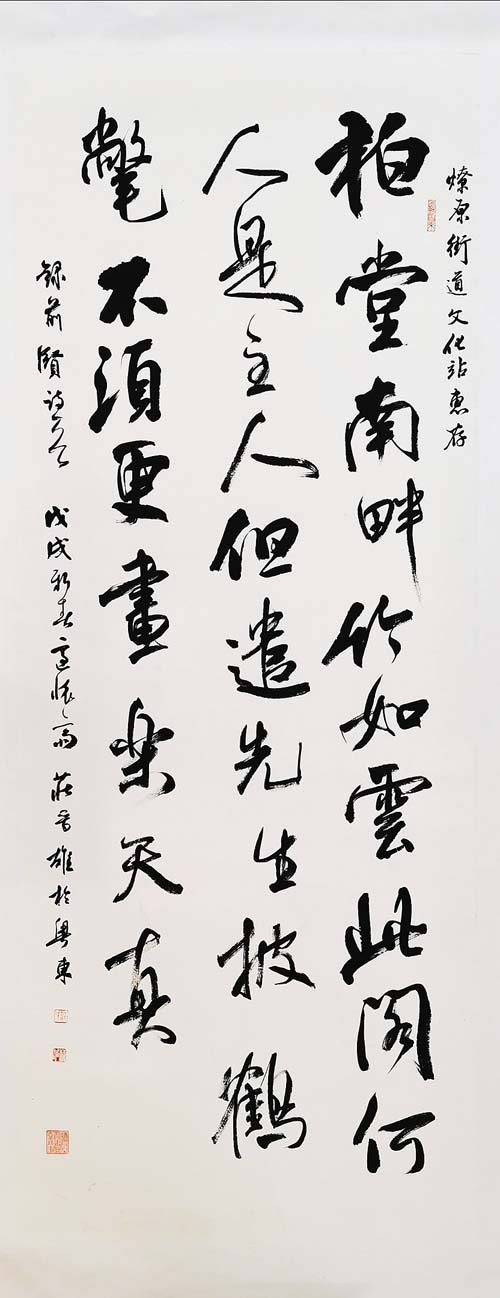 燎原街道文化站惠存
柏堂南畔竹如雲此閣何
人是主人但遣先生披鶴
氅不須更畫楽天真
録前賢詩 戊戌新春 懷齋 莊 雄於粵東